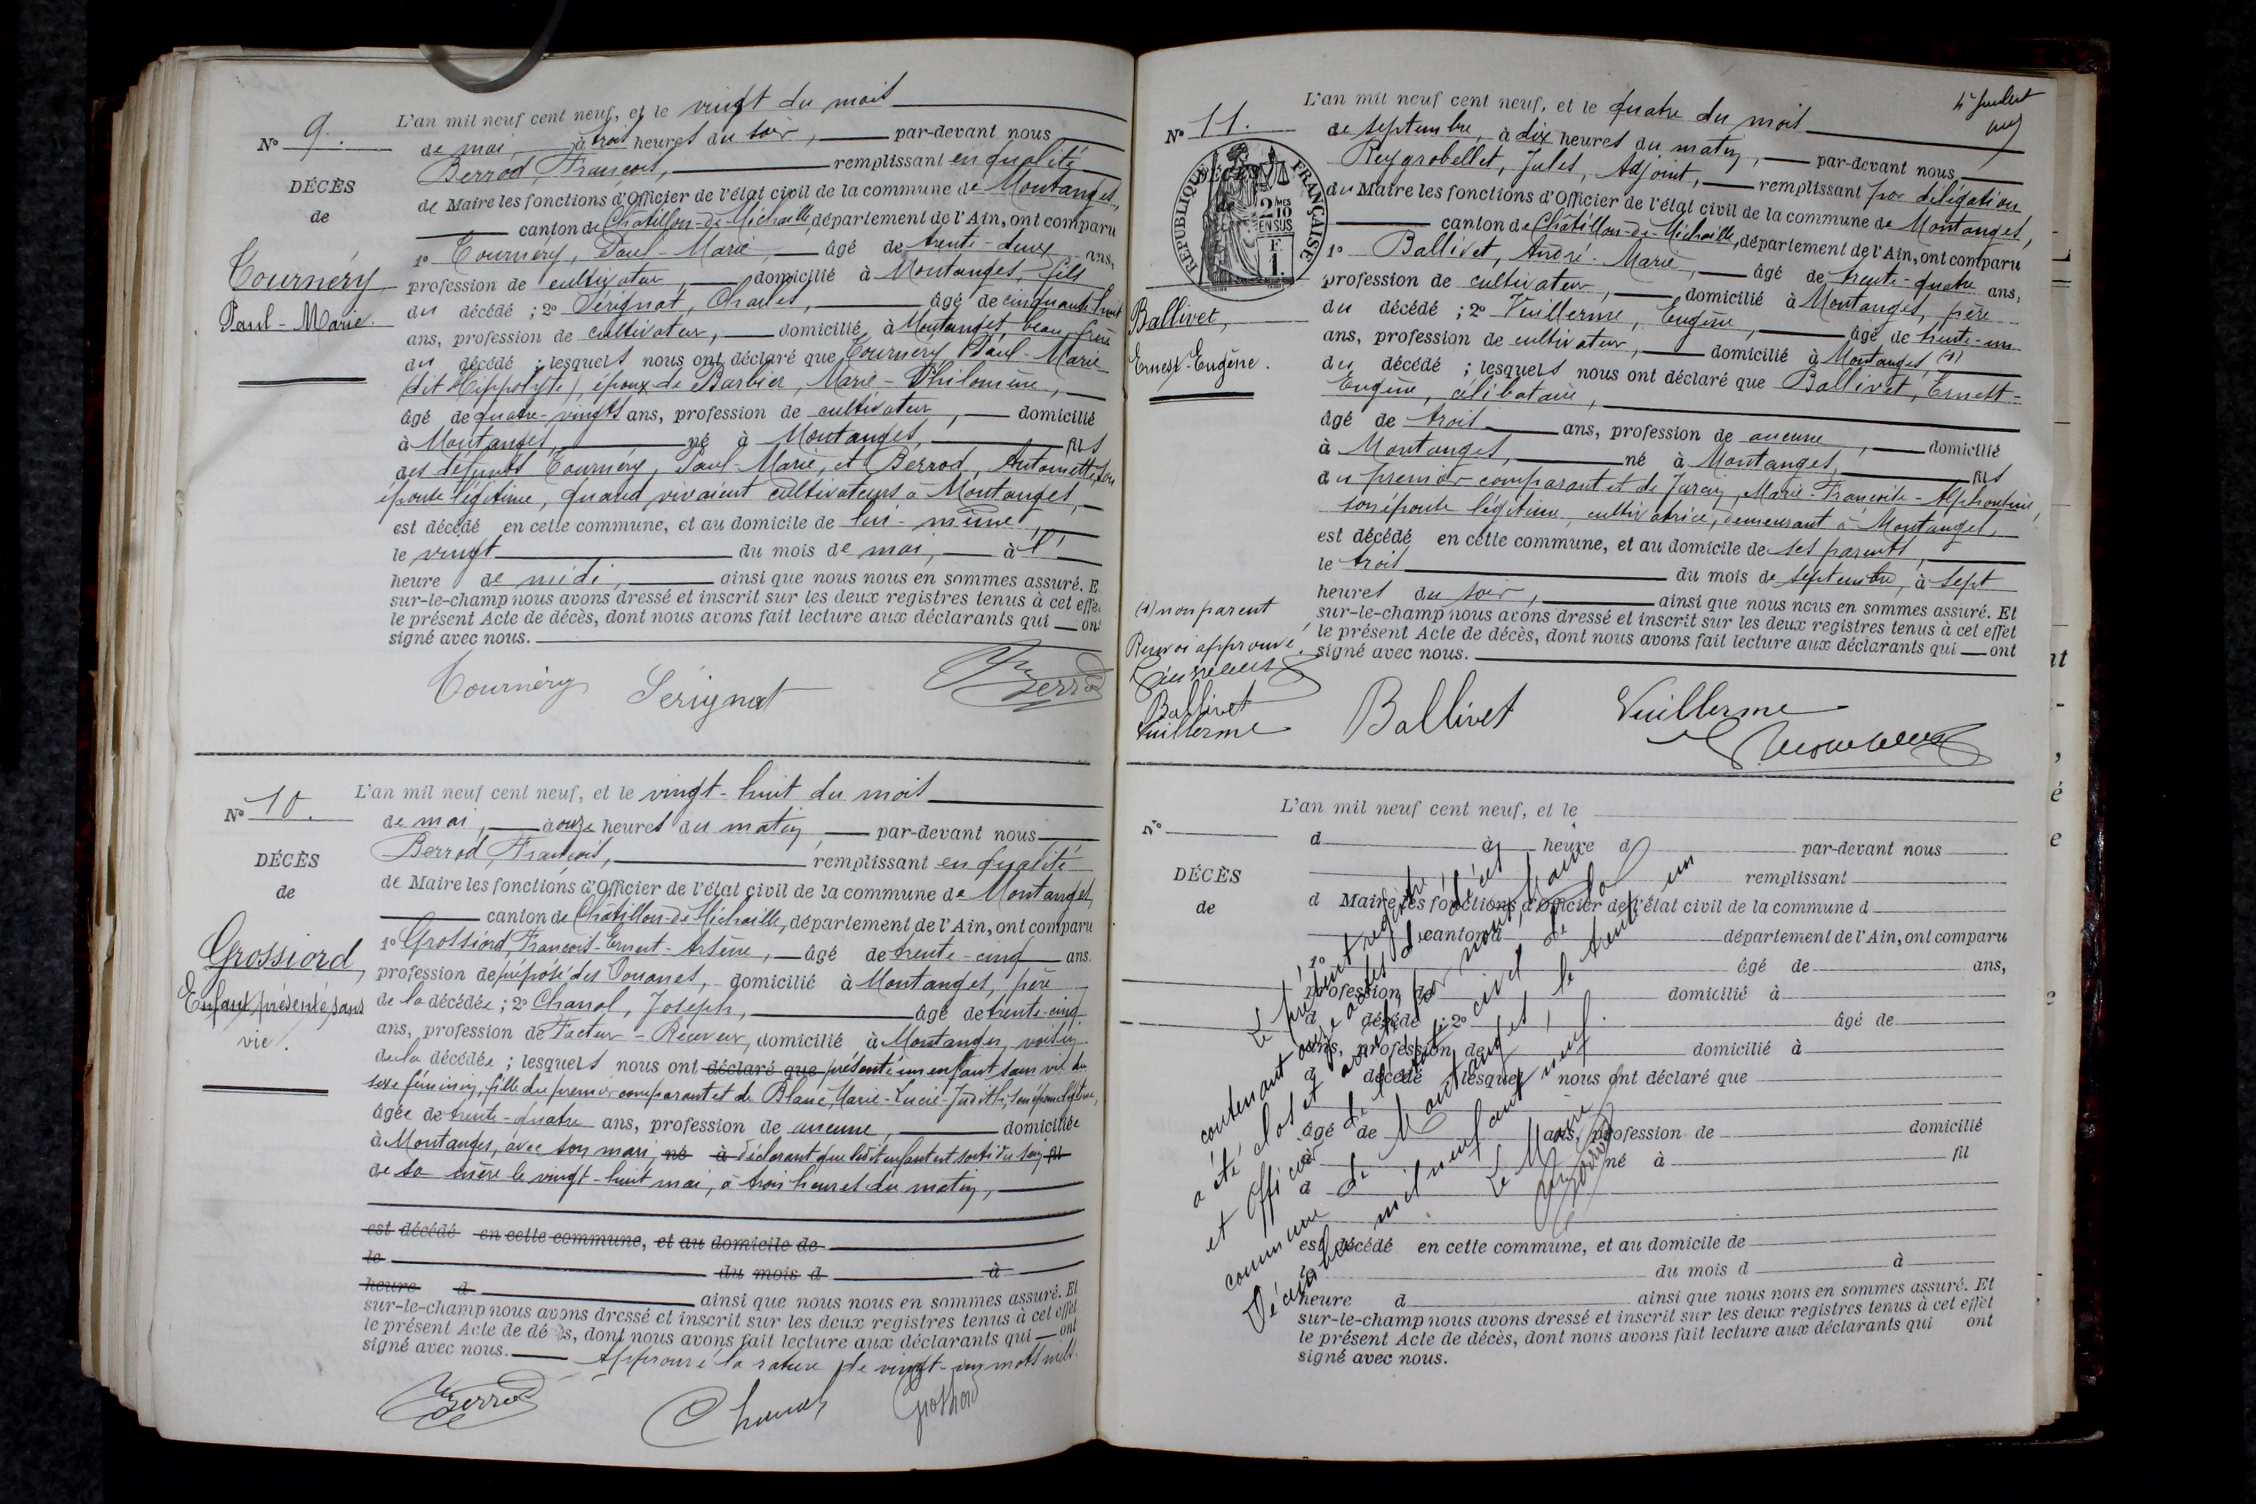 N° 9.
DÉCÈS
de
Tournéry
Paul-Marie.
L'an mil neuf cent neuf, et le vingt du mois
de mai, à trois heures du soir, par-devant nous
Berrod, François, remplissant en qualité
de Maire les fonctions d'Officier de l'état civil de la commune de Montanges,
canton de Châtillon-de-Michaille, département de l'Ain, ont comparu
1° Tournéry, Paul-Marie, âgé de trente-deux ans,
profession de cultivateur, domicilié à Montanges, fils
du décédé ; 2° Sérignat, Charles, âgé de cinquante-huit
ans, profession de cultivateur, domicilié à Montanges, beau-frère
du décédé ; lesquels nous ont déclaré que Tournéry, Paul-Marie
(dit Hippolyte), époux de Barbier, Marie-Philomène,
âgé de quatre-vingts ans, profession de cultivateur, domicilié
à Montanges, né à Montanges, fils
des défunts Tournéry, Paul-Marie, et Berrod, Antoinette, son
épouse légitime, quand vivaient cultivateurs à Montanges,
est décédé en cette commune, et au domicile de lui-même,
le vingt du mois de mai, à l'
heure de midi, ainsi que nous nous en sommes assuré. E
sur-le-champ nous avons dressé et inscrit sur les deux registres tenus à cet effe
le présent Acte de décès, dont nous avons fait lecture aux déclarants qui ont
signé avec nous.
Tournéry Sérignat Berrod
N° 10.
DÉCÈS
de
Grossiord,
Enfant présenté sans
vie.
L'an mil neuf cent neuf, et le vingt-huit du mois
de mai, à onze heures du matin, par-devant nous
Berrod, François, remplissant en qualité
de Maire les fonctions d'Officier de l'état civil de la commune de Montanges,
canton de Châtillon-de-Michaille, département de l'Ain, ont comparu
1° Grossiord, François-Ernest-Arsène, âgé de trente-cinq ans.
profession de préposé des Douanes, domicilié à Montanges, père
de la décédée ; 2° Chanal, Joseph, âgé de trente-cinq
ans, profession de Facteur-Receveur, domicilié à Montanges, voisin
de la décédée ; lesquels nous ont déclaré que présenté un enfant sans vie du
sexe féminin, fille du premier comparant et de Blanc, Marie-Lucie-Judith, son épouse légitime,
âgée de trente-quatre ans, profession de aucune, domiciliée
à Montanges, avec son mari, né à déclarant que ledit enfant est sorti du sein fil
de sa mère le vingt-huit mai, à trois heures du matin,
est décédé en cette commune, et au domicile de
le du mois d à
heure d ainsi que nous nous en sommes assuré. Et
sur-le-champ nous avons dressé et inscrit sur les deux registres tenus à cet effet
le présent Acte de décès, dont nous avons fait lecture aux déclarants qui ont
signé avec nous. Approuvé la rature de vingt-un mots nuls.
Berrod Chanal Grossiord
N° 11.
RÉPUBLIQUE FRANÇAISE
DÉCÈS
de
2/10MES
EN SUS
F.
1.
Ballivet,
Ernest-Eugène.
L'an mil neuf cent neuf, et le quatre du mois
de septembre, à dix heures du matin, par-devant nous
Reygrobellet, Jules, Adjoint, remplissant par délégation
du Maire les fonctions d'Officier de l'état civil de la commune de Montanges,
canton de Châtillon-de-Michaille, département de l'Ain, ont comparu
1° Ballivet, André-Marie, âgé de trente-quatre ans,
profession de cultivateur, domicilié à Montanges, père
du décédé ; 2° Vuillerme, Eugène, âgé de trente-un
ans, profession de cultivateur, domicilié à Montanges, (1)
du décédé ; lesquels nous ont déclaré que Ballivet, Ernest-
Eugène, célibataire,
âgé de trois ans, profession de aucune, domicilié
à Montanges, né à Montanges, fils
du premier comparant et de Juren, Marie-Françoise-Alphonsine,
son épouse légitime, cultivatrice, demeurant à Montanges,
est décédé en cette commune, et au domicile de ses parents,
le trois du mois de septembre, à sept
heures du soir, ainsi que nous nous en sommes assuré. Et
sur-le-champ nous avons dressé et inscrit sur les deux registres tenus à cet effet
le présent Acte de décès, dont nous avons fait lecture aux déclarants qui ont
signé avec nous.
(1) non parent
Renvoi approuvé.
Ballivet
Vuillerme
Ballivet Vuillerme
N°
DÉCÈS
de
L'an mil neuf cent neuf, et le
d à heure d par-devant nous
remplissant
d Maire les fonctions d'Officier de l'état civil de la commune d
canton d département de l'Ain, ont comparu
1° âgé de ans,
profession de domicilié à
d décédé ; 2° âgé de
ans, profession de domicilié à
d décédé lesquel nous ont déclaré que
âgé de ans, profession de domicilié
à né à fil
d
est décédé en cette commune, et au domicile de
le du mois d à
heure d ainsi que nous nous en sommes assuré. Et
sur-le-champ nous avons dressé et inscrit sur les deux registres tenus à cet effet
le présent Acte de décès, dont nous avons fait lecture aux déclarants qui ont
signé avec nous.
Le présent registre,
contenant onze actes de décès
a été clos et arrêté par nous, Maire
et Officier de l'état civil de la
commune de Montanges, le trente un
Décembre mil neuf cent neuf.
Le Maire,
Berrod